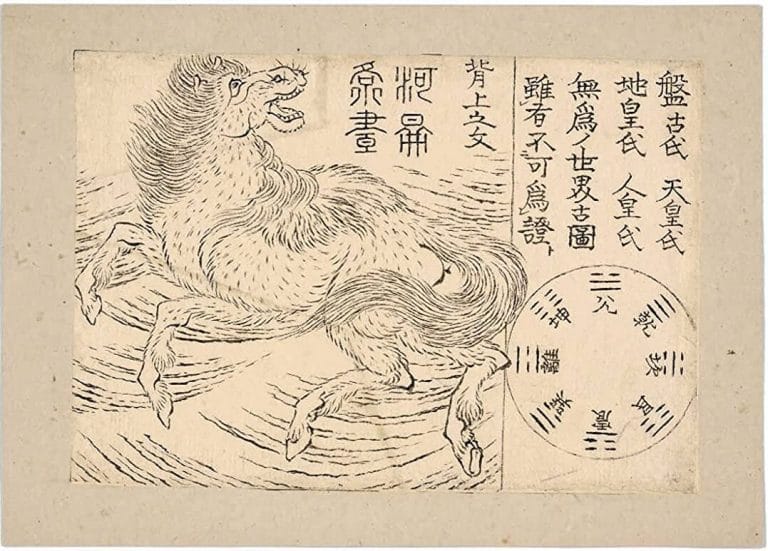 盤古氏 天皇氏
地皇氏 人皇氏
無爲ノ世界古圖
雖有不可爲證ト
背上之文
兌
乾
坎
艮
震
巽
離
坤